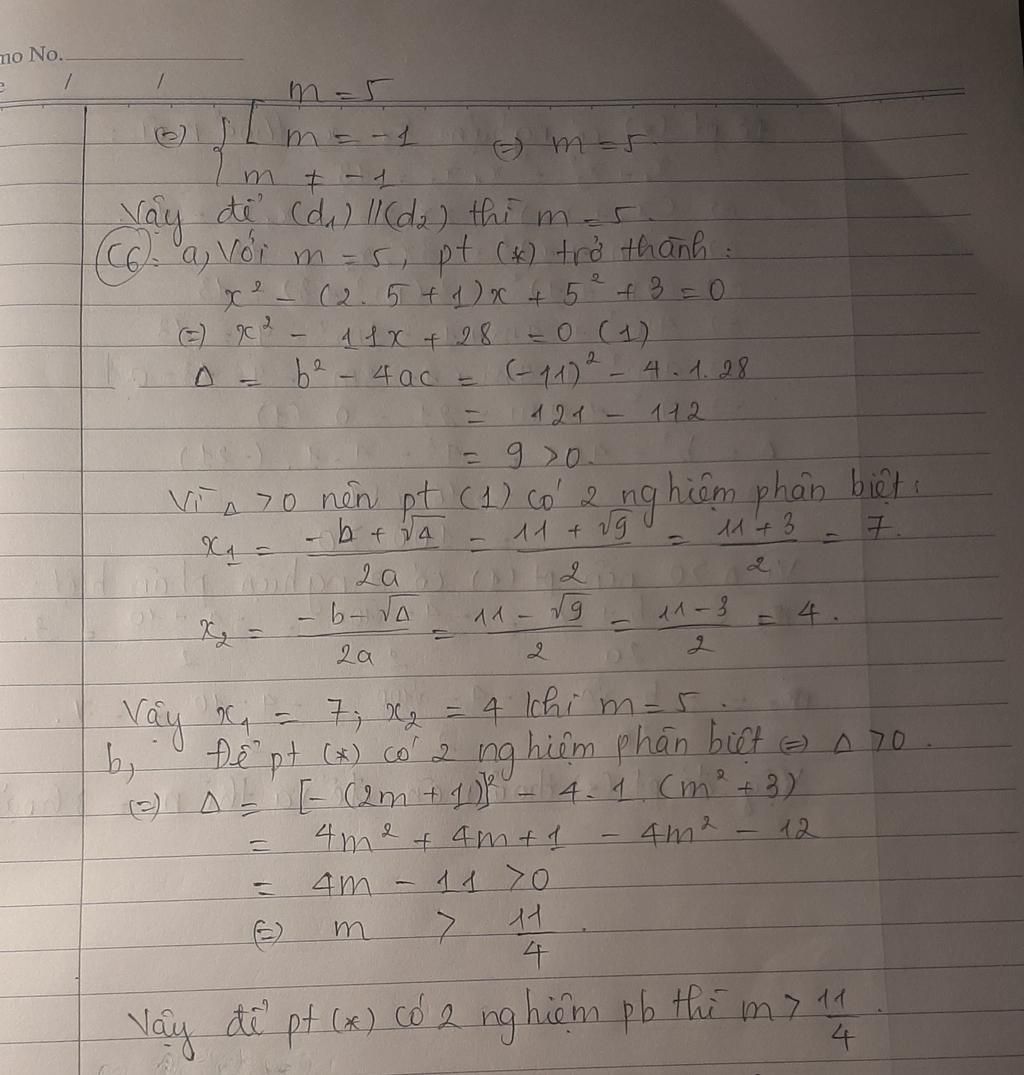 mo No.
/ /
m = 5
⇔ { [ m = -1 ⇔ m = 5.
m ≠ -1
Vậy để (d₁) // (d₂) thì m = 5.
C6: a, Với m = 5, pt (*) trở thành:
x² - (2. 5 + 1)x + 5² + 3 = 0
⇔ x² - 11x + 28 = 0 (1)
Δ = b² - 4ac = (-11)² - 4.1.28
= 121 - 112
= 9 > 0.
Vì Δ > 0 nên pt (1) có 2 nghiệm phân biệt:
x₁ = (-b + √Δ)/2a = (11 + √9)/2 = (11 + 3)/2 = 7.
x₂ = (-b - √Δ)/2a = (11 - √9)/2 = (11 - 3)/2 = 4.
Vậy x₁ = 7; x₂ = 4 khi m = 5.
b, Để pt (*) có 2 nghiệm phân biệt ⇔ Δ > 0.
⇔ Δ = [-(2m + 1)]² - 4.1.(m² + 3)
= 4m² + 4m + 1 - 4m² - 12
= 4m - 11 > 0
⇔ m > 11/4.
Vậy để pt (*) có 2 nghiệm pb thì m > 11/4.